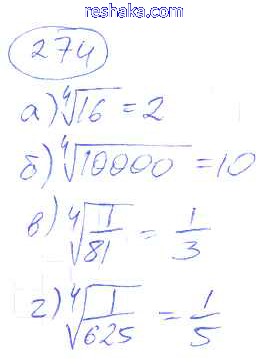 reshaka.com
274
а) ⁴√16 = 2
б) ⁴√10000 = 10
в) ⁴√(1/81) = 1/3
г) ⁴√(1/625) = 1/5